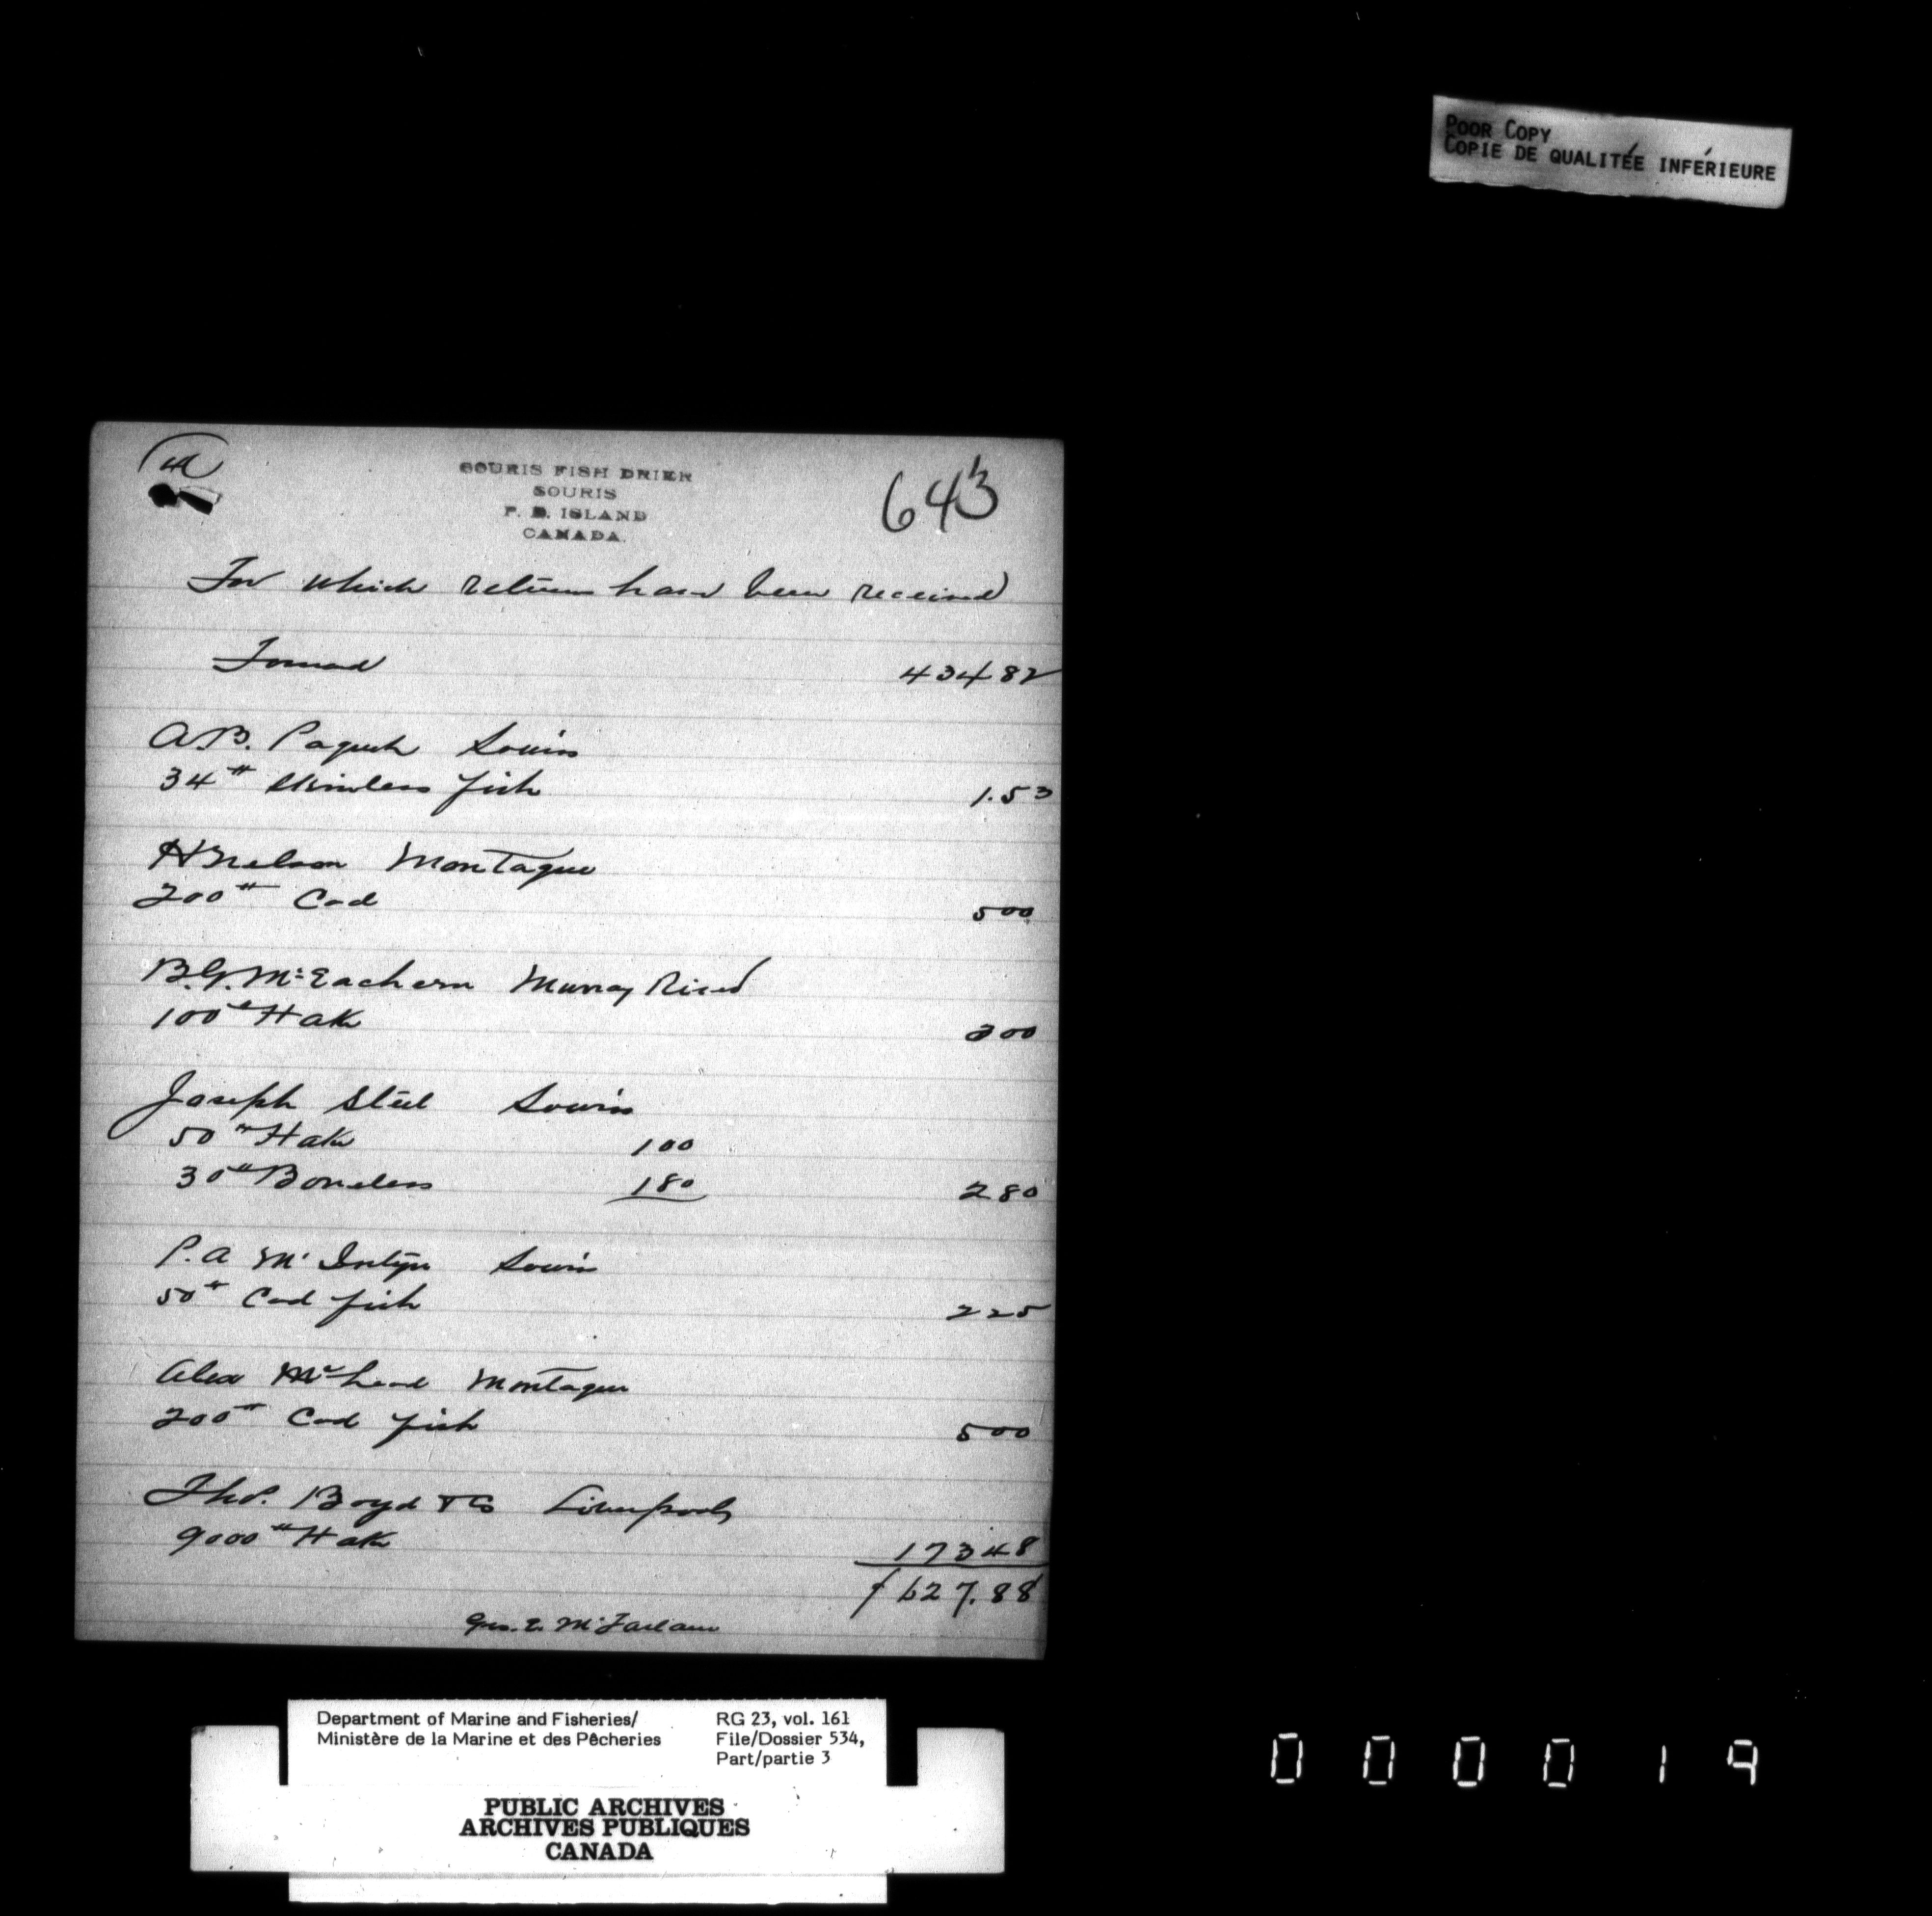 POOR COPY
COPIE DE QUALITÉE INFÉRIEURE
SOURIS FISH DRIER
SOURIS
P. E. ISLAND
CANADA.
643
For which returns have been received
Forward 434 82
A.B. Paquet Souris
34# Skinless fish 1.53
H Nelson Montague
200# Cod 5 00
B.G. McEachern Murray River
100# Hake 3 00
Joseph Steel Souris
50# Hake 1 00
30# Boneless 1 80 2 80
P.A McIntyre Souris
50# Cod fish 2 25
Alex McLeod Montague
200# Cod fish 5 00
Thos. Boyd & Co Liverpool
9000# Hake 173 48
$ 627.88
Geo. E. McFarlane
Department of Marine and Fisheries/ RG 23, vol. 161
Ministère de la Marine et des Pêcheries File/Dossier 534,
Part/partie 3
PUBLIC ARCHIVES
ARCHIVES PUBLIQUES
CANADA
000019